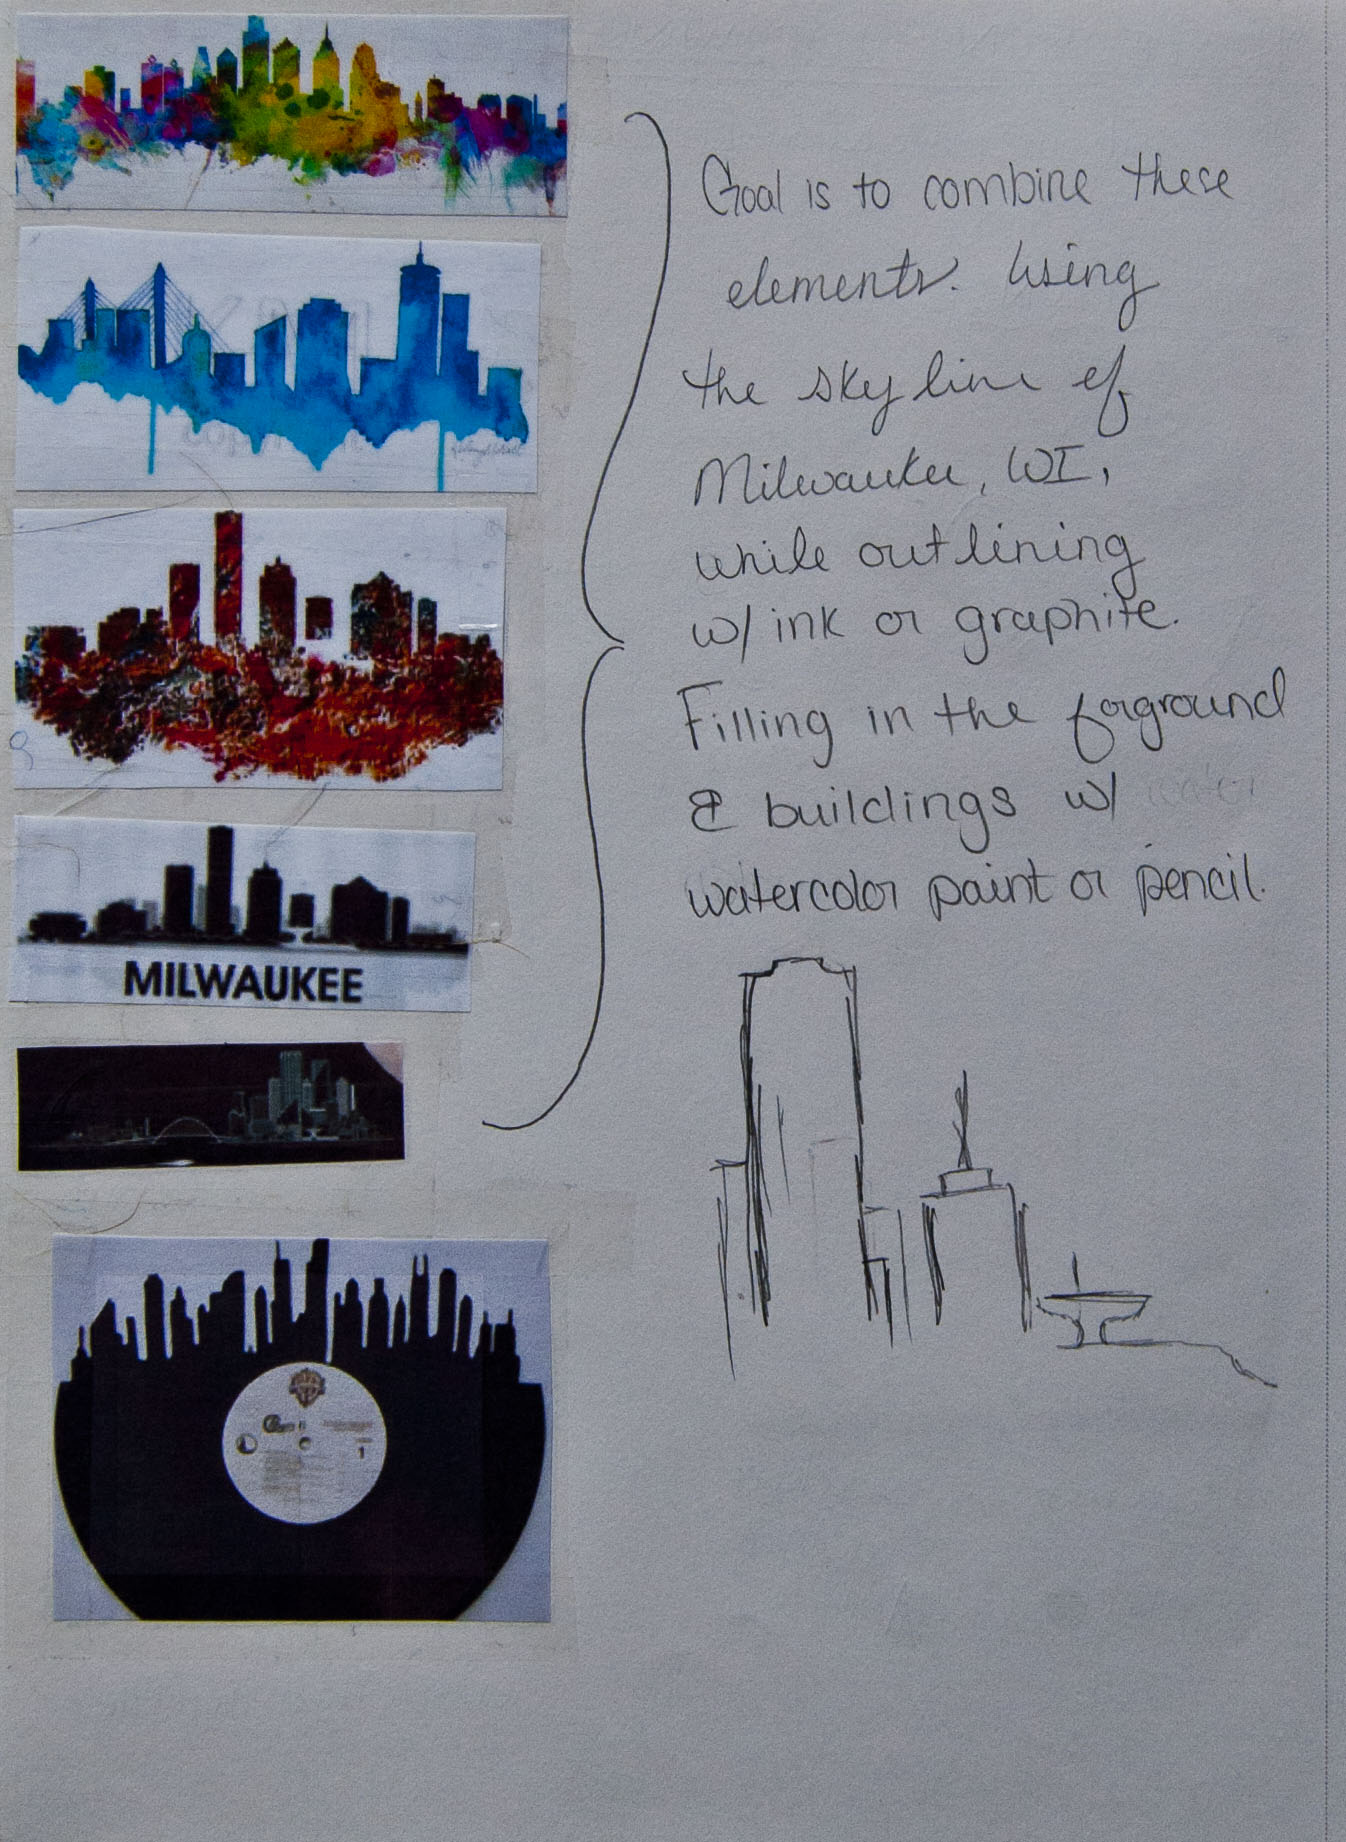 Goal is to combine these
elements. Using
the skyline of
Milwaukee, WI,
while outlining
w/ ink or graphite.
Filling in the forground
& buildings w/ water
watercolor paint or pencil.
MILWAUKEE
1